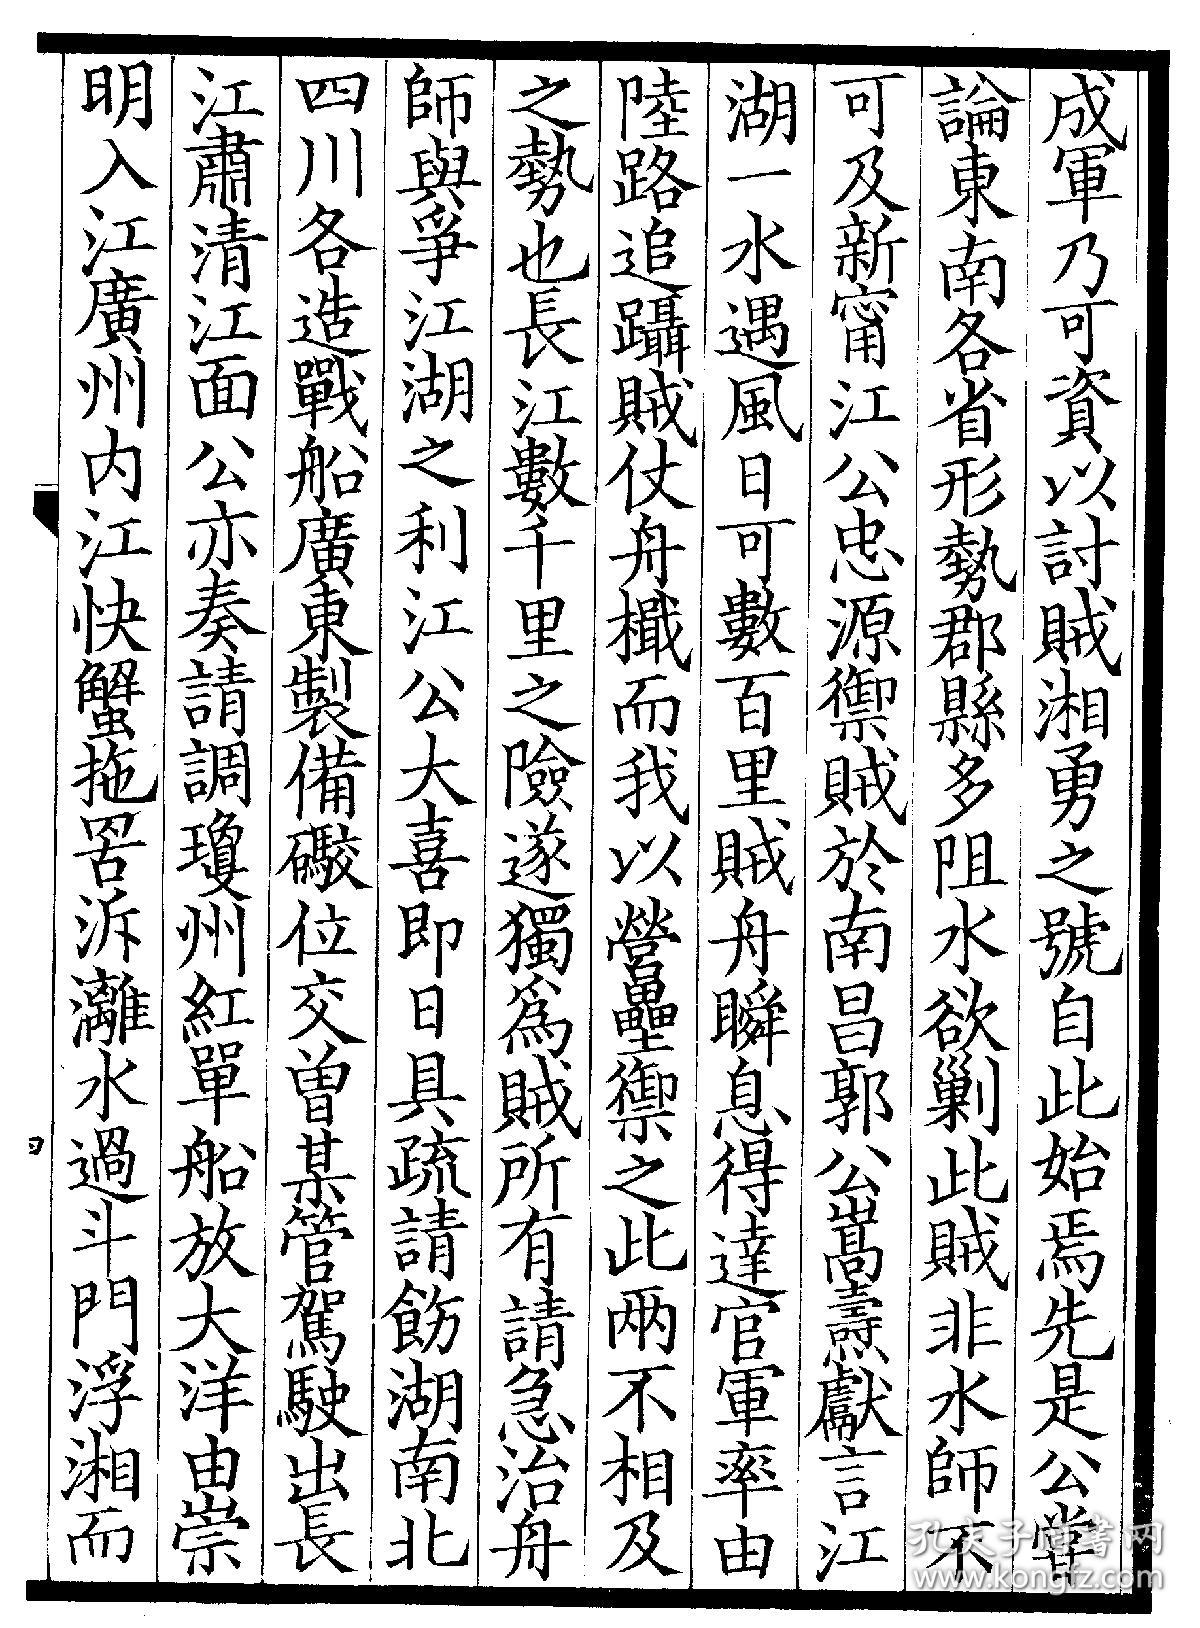 成軍乃可資以討賊湘勇之號自此始焉先是公嘗
論東南各省形勢郡縣多阻水欲剿此賊非水師不
可及新甯江公忠源禦賊於南昌郭公嵩燾獻言江
湖一水遇風日可數百里賊舟瞬息得達官軍率由
陸路追躡賊仗舟檝而我以營壘禦之此兩不相及
之勢也長江數千里之險遂獨爲賊所有請急治舟
師與爭江湖之利江公大喜即日具疏請飭湖南北
四川各造戰船廣東製備礮位交曾某管駕駛出長
江肅清江面公亦奏請調瓊州紅單船放大洋由崇
明入江廣州内江快蟹拖罟泝灕水過斗門浮湘而
孔夫子旧书网
www.kongfz.com